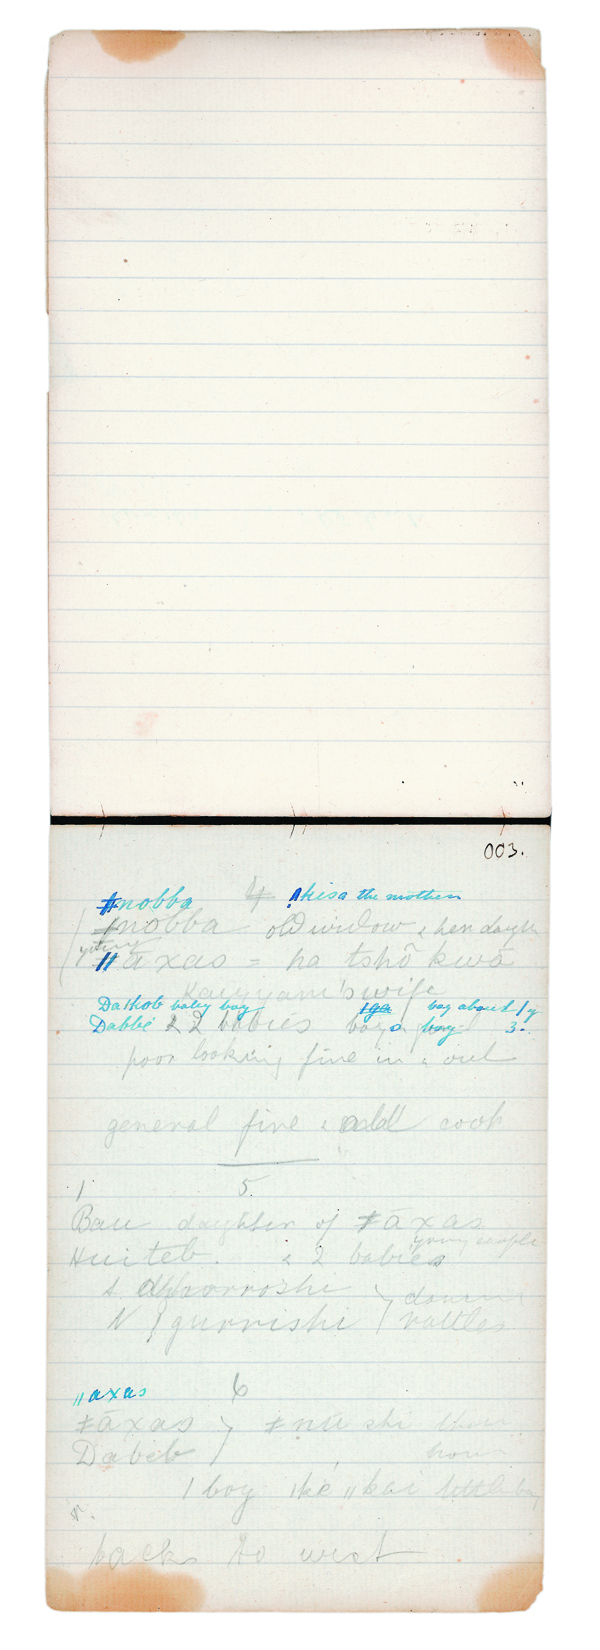 003.
ǂnobba 4 ǁkisa the mother
ǂnobba old widow & her daught
young
ǁāxas = ha tshō kwā
Kaiyyam's wife
Daikob baby boy ǀga boy about 1 y
Dabbé & 2 babies boys boy 3.
poor looking fire in & out
general fire & add cook
1 5.
Bau daughter of ǂāxas
young couple
Huiteb. & 2 babies
N ǀgurrishi rattles
ǁaxas 6
ǂāxas ǂnū shi
Dabeb
1 boy ǀkē ǁkai little boy
backs to west